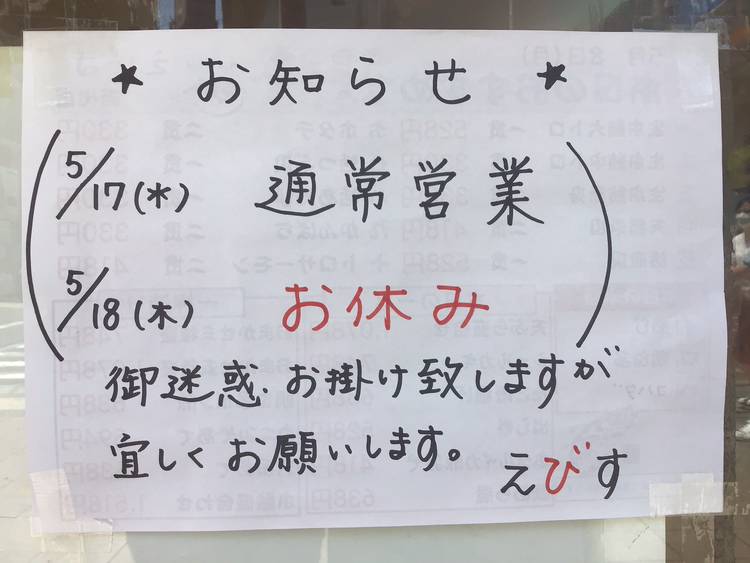 ★ お知らせ ★
5/17(水) 通常営業
5/18(木) お休み
御迷惑、お掛け致しますが
宜しくお願いします。
えびす